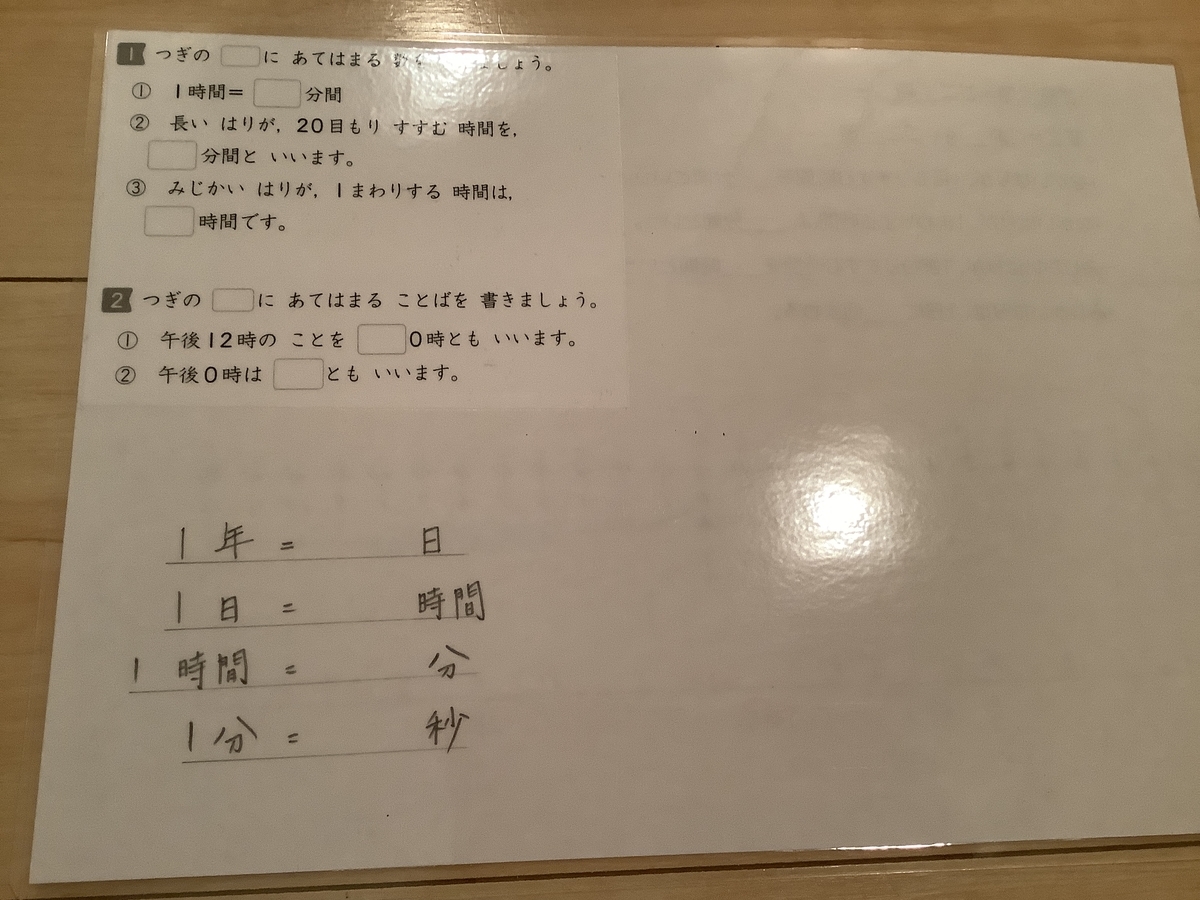 1 つぎの に あてはまる 数を ましょう。
① 1時間= 分間
② 長い はりが, 20目もり すすむ 時間を,
分間と いいます。
③ みじかい はりが, 1まわりする 時間は,
時間です。
2 つぎの に あてはまる ことばを 書きましょう。
① 午後12時の ことを 0時とも いいます。
② 午後0時は とも いいます。
1 年 = 日
1 日 = 時間
1 時間 = 分
1分 = 秒